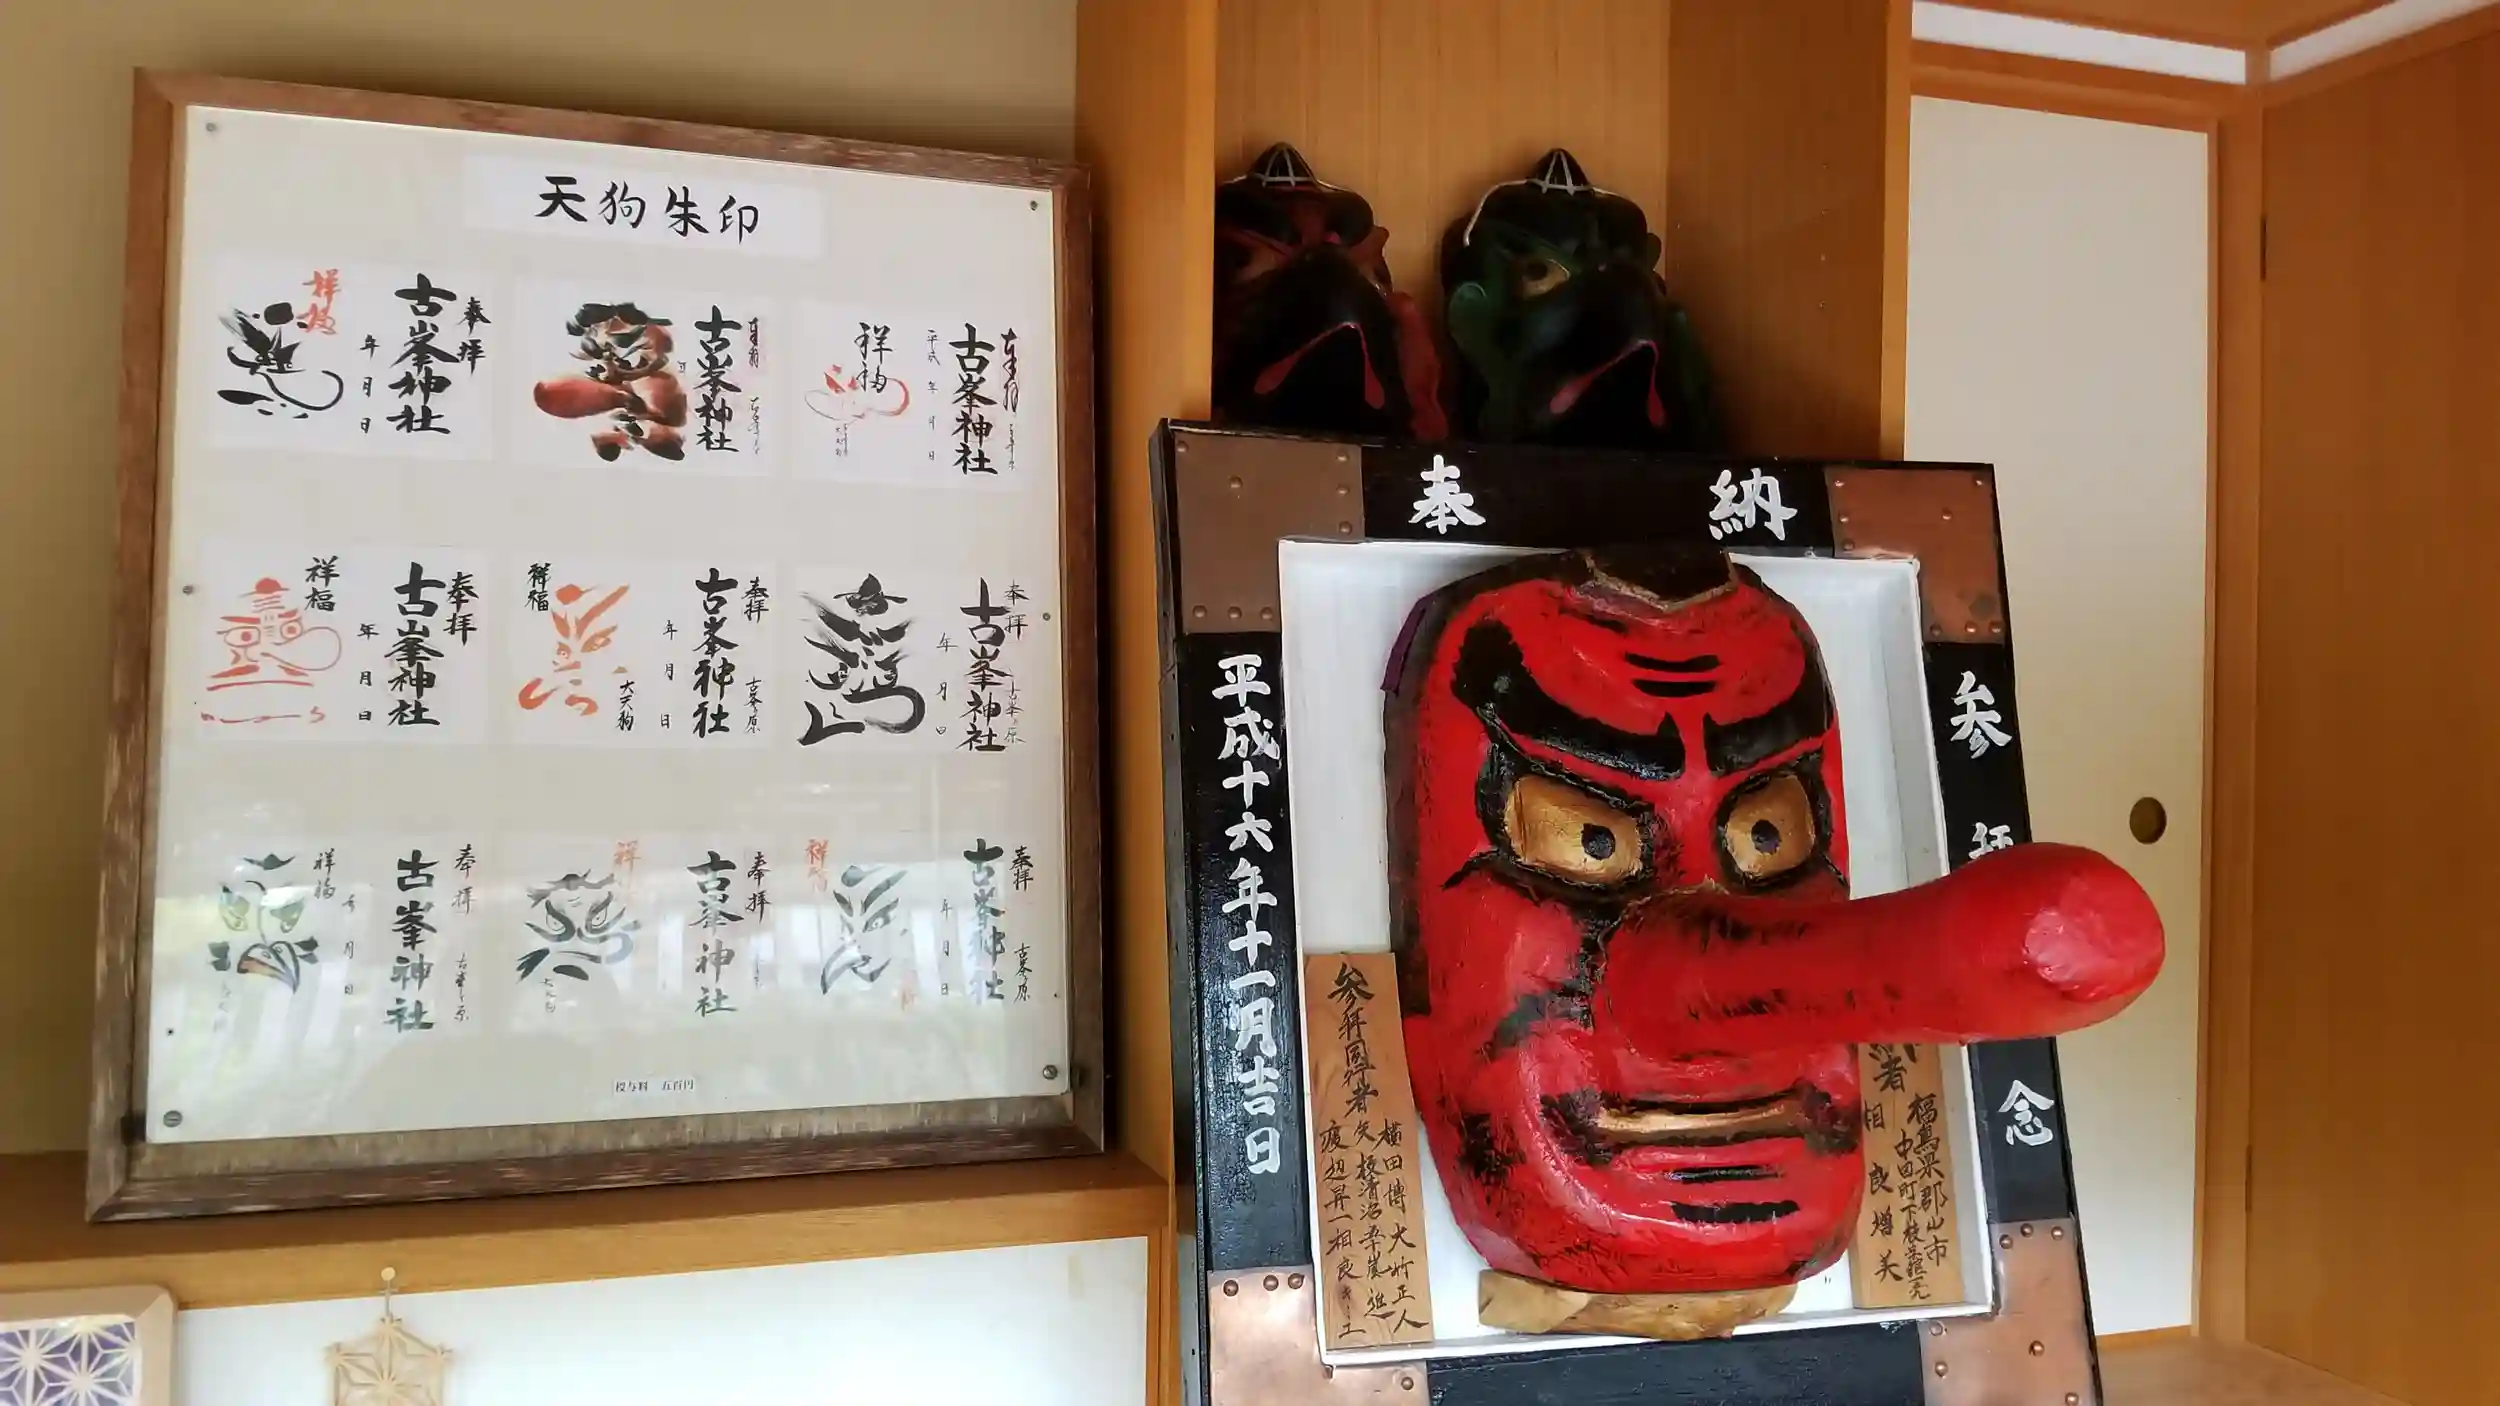 天狗朱印
奉拝
古峯神社
年月日
祥福
古峯神社
古峯神社
平成 年 月 日
祥福
奉拝
古峯神社
年月日
祥福
奉拝
古峯神社
古峯ヶ原
年月日
祥福
大天狗
奉拝
古峯神社
古峯ヶ原
年月日
奉拝
古峯神社
古峯ヶ原
月日
祥福
奉拝
古峯神社
祥
奉拝
古峯神社
古峯ヶ原
年月日
祥福
授与料 五百円
奉納
参拝念
平成十六年十一月吉日
者
福島県郡山市
中田町下枝
相良増美
参拝同行者
横田博 大竹正人
矢板清治 五十嵐進
渡辺昇一 相良キーエ